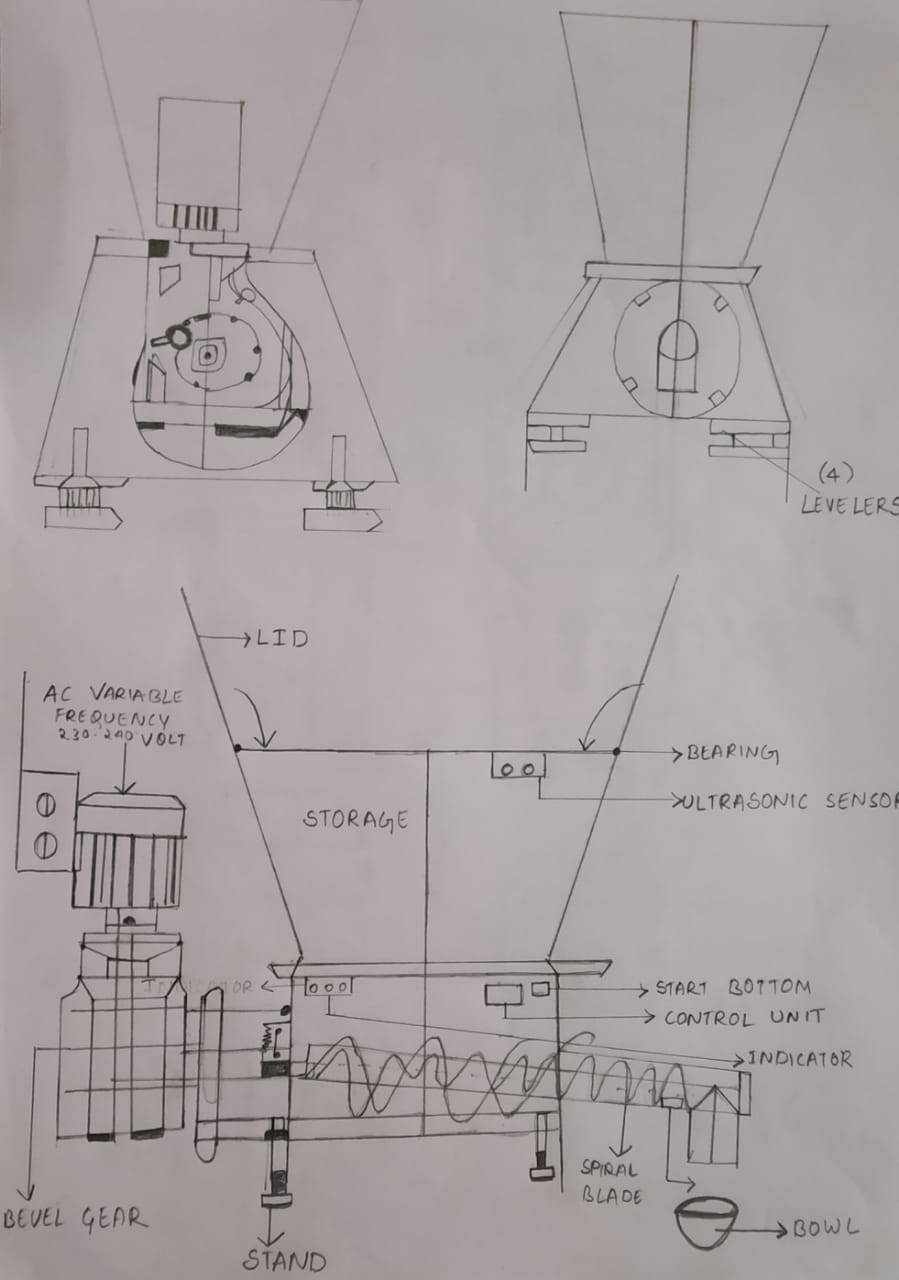 (4)
LEVELERS
LID
AC VARIABLE
FREQUENCY
230-240 VOLT
BEARING
ULTRASONIC SENSOR
STORAGE
INDICATOR
START BOTTOM
CONTROL UNIT
INDICATOR
SPIRAL
BLADE
BEVEL GEAR
BOWL
STAND